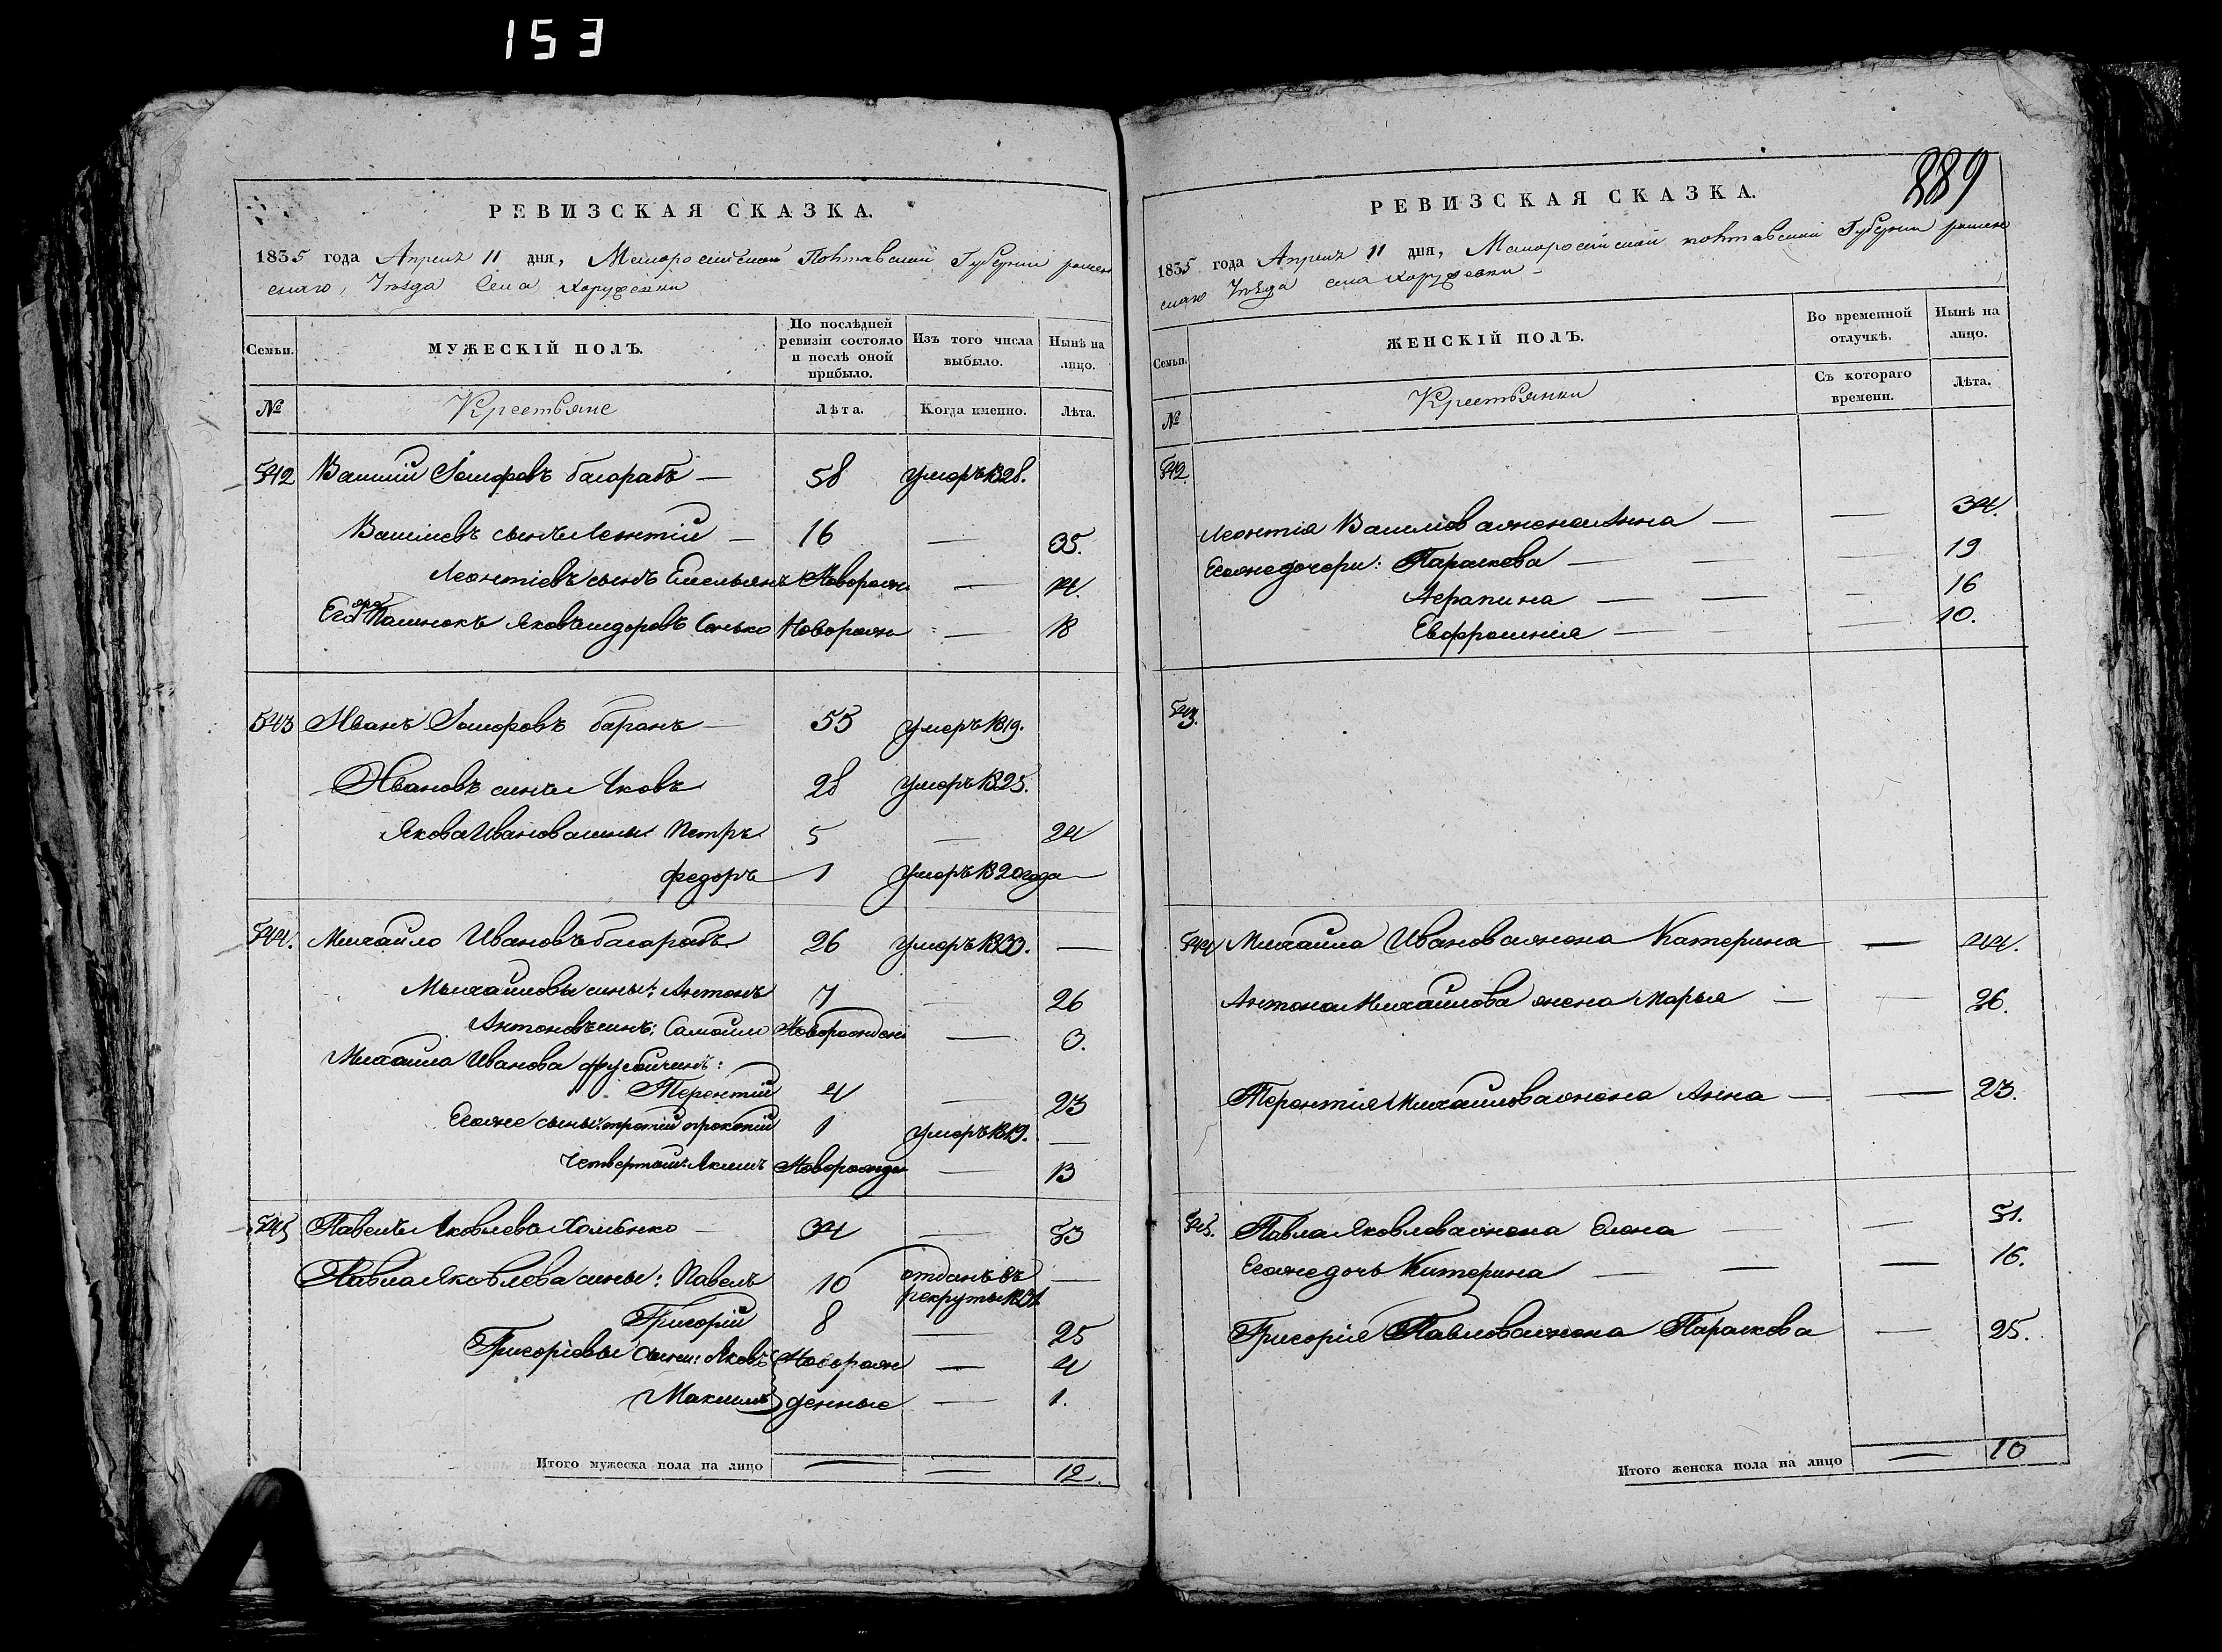 153
РЕВИЗСКАЯ СКАЗКА.
1835 года Апреля 11 дня, Малоросийской Полтавской Губернии ромен
скаго, Уезда Села Хоружевки
Семьи.
МУЖЕСКІЙ ПОЛЪ.
По послѣдней ревизіи состояло и послѣ оной прибыло.
Изъ того числа выбыло.
Нынѣ на лицо.
№
Крестьяне
Лѣта.
Когда именно.
Лѣта.
542 Василий Иосифовъ басарабъ — 58 умеръ 1828.
Василіевъ сынъ Леонтій — 16 — 35.
Леонтіевъ сынъ Емельянъ Новорожд — 14.
Его Яковъ Новорожд — 18
543 Иванъ Иосифовъ баранъ — 55 умеръ 1819.
Ивановъ синъ Яковъ 28 умеръ 1825.
Якова Иванова сины Петръ 5 — 24
федоръ 1 умеръ 1820 года —
544. Михайло Ивановъ басарабъ 26 умеръ 1833. —
Михайловы сины: Антонъ 7 — 26
Антоновъ синъ: Самойло Новорожден — 3.
Михайла Иванова другой синъ:
Терентій 4 — 23
Егоже сины: третій прокопій 1 умеръ 1819. —
четвертой: Якимъ Новорожде — 13
545 Павелъ Яковлевъ Хоменко — 34 — 53
Павла Яковлева сины: Павелъ 10 отданъ въ рекруты 1831 —
Григорій 8 — 25
Григоріевы сыни: Яковъ Новорож — 4
Максимъ денные — 1.
Итого мужеска пола на лицо — — 12.
889
РЕВИЗСКАЯ СКАЗКА.
1835 года Апреля 11 дня, Малоросийской полтавской Губернии ромен
скаго Уезда села Хоружевки —
Семьи.
ЖЕНСКІЙ ПОЛЪ.
Во временной отлучкѣ.
Нынѣ на лицо.
№
Крестьянки
Съ котораго времени.
Лѣта.
542.
Леонтія Василіова жена Анна — — 34.
Егоже дочери: Параскева — — 19
— — 16
Евфросинія — — 10.
543.
544 Михайла Иванова жена Катерина — 44.
Антона Михайлова жена Марья — — 26.
Терентія Михайлова жена Анна — — 23.
545. Павла Яковлева жена Елена — — 51.
Егоже дочь Катерина — — — 16.
Григорія Павлова жена Параскова — 25.
Итого женска пола на лицо — 10